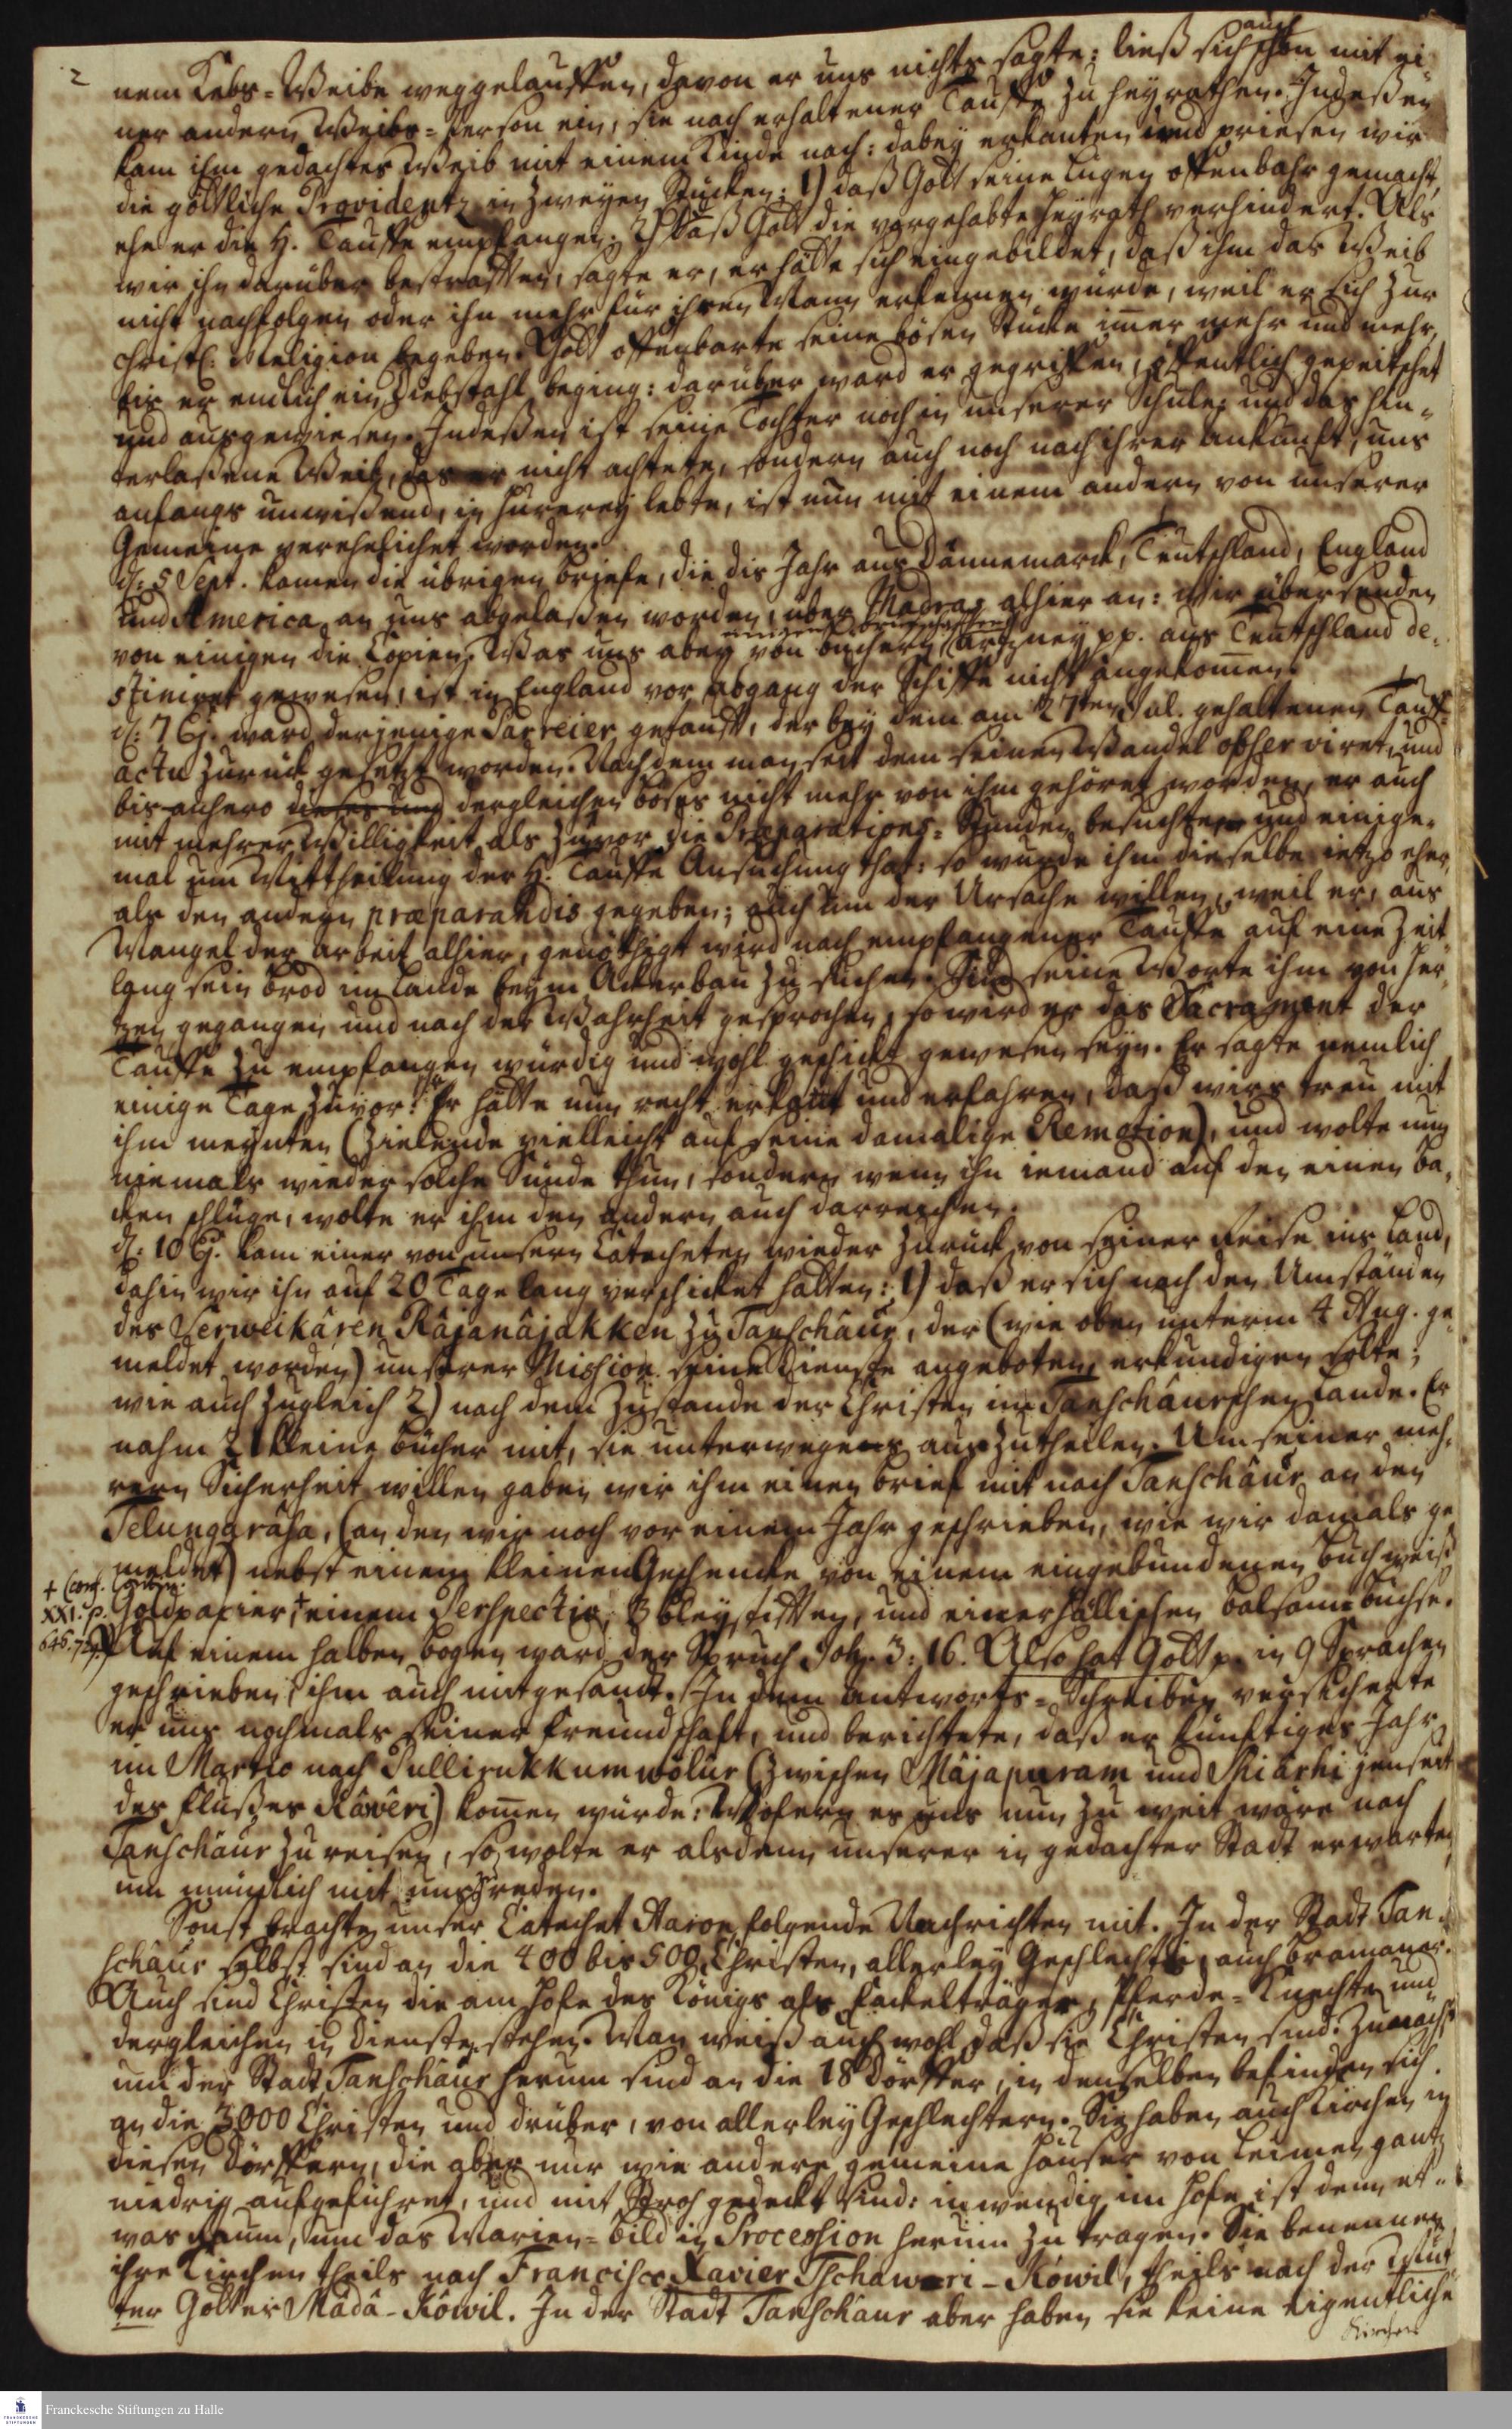 2
nem Kebs-Weibe weggelauffen, davon er uns nichts sagte: ließ sich auch schon mit ei-
ner andern Weibs-Person ein, sie nach erhaltener Tauffe zu heyrathen. Indeßen
kam ihm gedachtes Weib mit einem Kinde nach: dabey erkanten und priesen wir
die göttliche Providentz in zweyen Stücken: 1) daß Gott seine Lügen offenbahr gemacht,
ehe er die H. Tauffe empfangen; 2) daß Gott die vorgehabte Heyrath verhindert. Als
wir ihn darüber bestrafften, sagte er, er hätte sich eingebildet, daß ihm das Weib
nicht nachfolgen oder ihn mehr für ihren Mann erkennen würde, weil er sich zur
Christl. Religion begeben. Gott offenbarte seine bösen Stücke immer mehr und mehr,
bis er endlich ein Diebstahl beging: darüber ward er gegriffen, öffentlich gepeitschet
und ausgewiesen. Indeßen ist seine Tochter noch in unserer Schule; und das hin-
terlaßene Weib, das er nicht achtete, sondern auch noch nach ihrer Ankunft, uns
anfangs unwißend, in Hurerey lebte, ist nun mit einem andern von unserer
Gemeine verehelichet worden.
d. 5 Sept. kamen die übrigen Briefe, die dis Jahr aus Dännemarck, Teutschland, England
und America an uns abgelaßen worden, über Madras alhier an: wir übersenden
von einigen die Copien. Was uns aber von Büchern, Artzney pp. aus Teutschland de-
stiniret gewesen, ist in England vor Abgang der Schiffe nicht angekommen.
d. 7 Ej. ward derjenige Parreier getaufft, der bey dem am 27ten Jul. gehaltenen Tauff-
actu zurück gesetzt worden. Nachdem man seit dem seinen Wandel observiret, und
bis anhero dieses und dergleichen böses nicht mehr von ihm gehöret worden, er auch
mit mehrer Willigkeit als zuvor die Præparations-Stunden besuchte, und einige-
mal um Mittheilung der H. Tauffe Ansuchung that: so wurde ihm dieselbe ietzo eher,
als den andern præparandis gegeben; auch um der Ursache willen, weil er, aus
Mangel der Arbeit alhier, genöthigt wird nach empfangener Tauffe auf eine Zeit-
lang sein Brod im Lande beym Ackerbau zu suchen. Sind seine Worte ihm von Her-
zen gegangen und nach der Wahrheit gesprochen, so wird er das Sacrament der
Tauffe zu empfangen würdig und wohl geschickt gewesen seyn. Er sagte nemlich
einige Tage zuvor: Er hätte nun recht erkant und erfahren, daß wirs treu mit
ihm meynten (zielende vielleicht auf seine damalige Remotion), und wolte nun
niemals wieder solche Sünde thun, sondern wenn ihn iemand auf den einen Ba-
cken schlüge, wolte er ihm den andern auch darreichen.
d. 10 Ej. kam einer von unsern Catecheten wieder zurück von seiner Reise ins Land,
dahin wir ihn auf 20 Tage lang verschicket hatten: 1) daß er sich nach den Umständen
des Serweikâren Râjanâjakken zu Tanschâur, der (wie oben unterm 4 Aug. ge-
meldet worden) unserer Mission seine Dienste angeboten, erkundigen solte;
wie auch zugleich 2) nach dem Zustande der Christen im Tanschâurschen Lande. Er
nahm 21 kleine Bücher mit, sie unterwegens auszutheilen. Um seiner meh-
rern Sicherheit willen gaben wir ihm einen Brief mit nach Tanschâur an den
Telungarâsa, (an den wir noch vor einem Jahr geschrieben, wie wir damals ge-
meldet) nebst einem kleinen Geschencke von einem eingebundenen Buch weiß
+ (conf. Contin. XXI. p. 646. 724.)
Goldpapier,+ einem Perspectiv, 3 Bleystifften, und einer Hällischen Balsam-Büchse.
Auf einem halben Bogen ward der Spruch Joh. 3: 16. Also hat Gott p. in 9 Sprachen
geschrieben, ihm auch mitgesandt. In dem Antworts-Schreiben versicherte
er uns nochmals seiner Freundschaft, und berichtete, daß er künftiges Jahr
im Martio nach Pullirukkumwôlûr (zwischen Mâjapuram und Schiârhi jenseit
des Flußes Kâwêri) kommen würde: Wofern es uns nun zu weit wäre nach
Tanschâur zu reisen, so wolte er alsdenn unserer in gedachter Stadt erwarten,
um mündlich mit uns zu reden.
Sonst brachte unser Catechet Aaron folgende Nachrichten mit. In der Stadt Tan-
schâur selbst sind an die 400 bis 500 Christen, allerley Geschlechts, auch Bramaner.
Auch sind Christen die am Hofe des Königs als Fackelträger, Pferde-Knechte und
dergleichen in Diensten stehen. Man weiß auch wohl, daß sie Christen sind. Zunächst
um der Stadt Tanschâur herum sind an die 18 Dörffer, in denselben befinden sich
an die 3000 Christen und drüber, von allerley Geschlechtern. Sie haben auch Kirchen in
diesen Dörffern, die aber nur wie andere gemeine Häuser von Leimen gantz
niedrig aufgeführet, und mit Stroh gedeckt sind: inwendig im Hofe ist denn et-
was Raum, um das Marien-Bild in Procession herum zu tragen. Sie benennen
ihre Kirchen theils nach Francisco Xavier Tschaweri-Kôwil, theils nach der Mut-
ter Gottes Mâdâ-Kôwil. In der Stadt Tanschâur aber haben sie keine eigentliche
Kirchen
Franckesche Stiftungen zu Halle